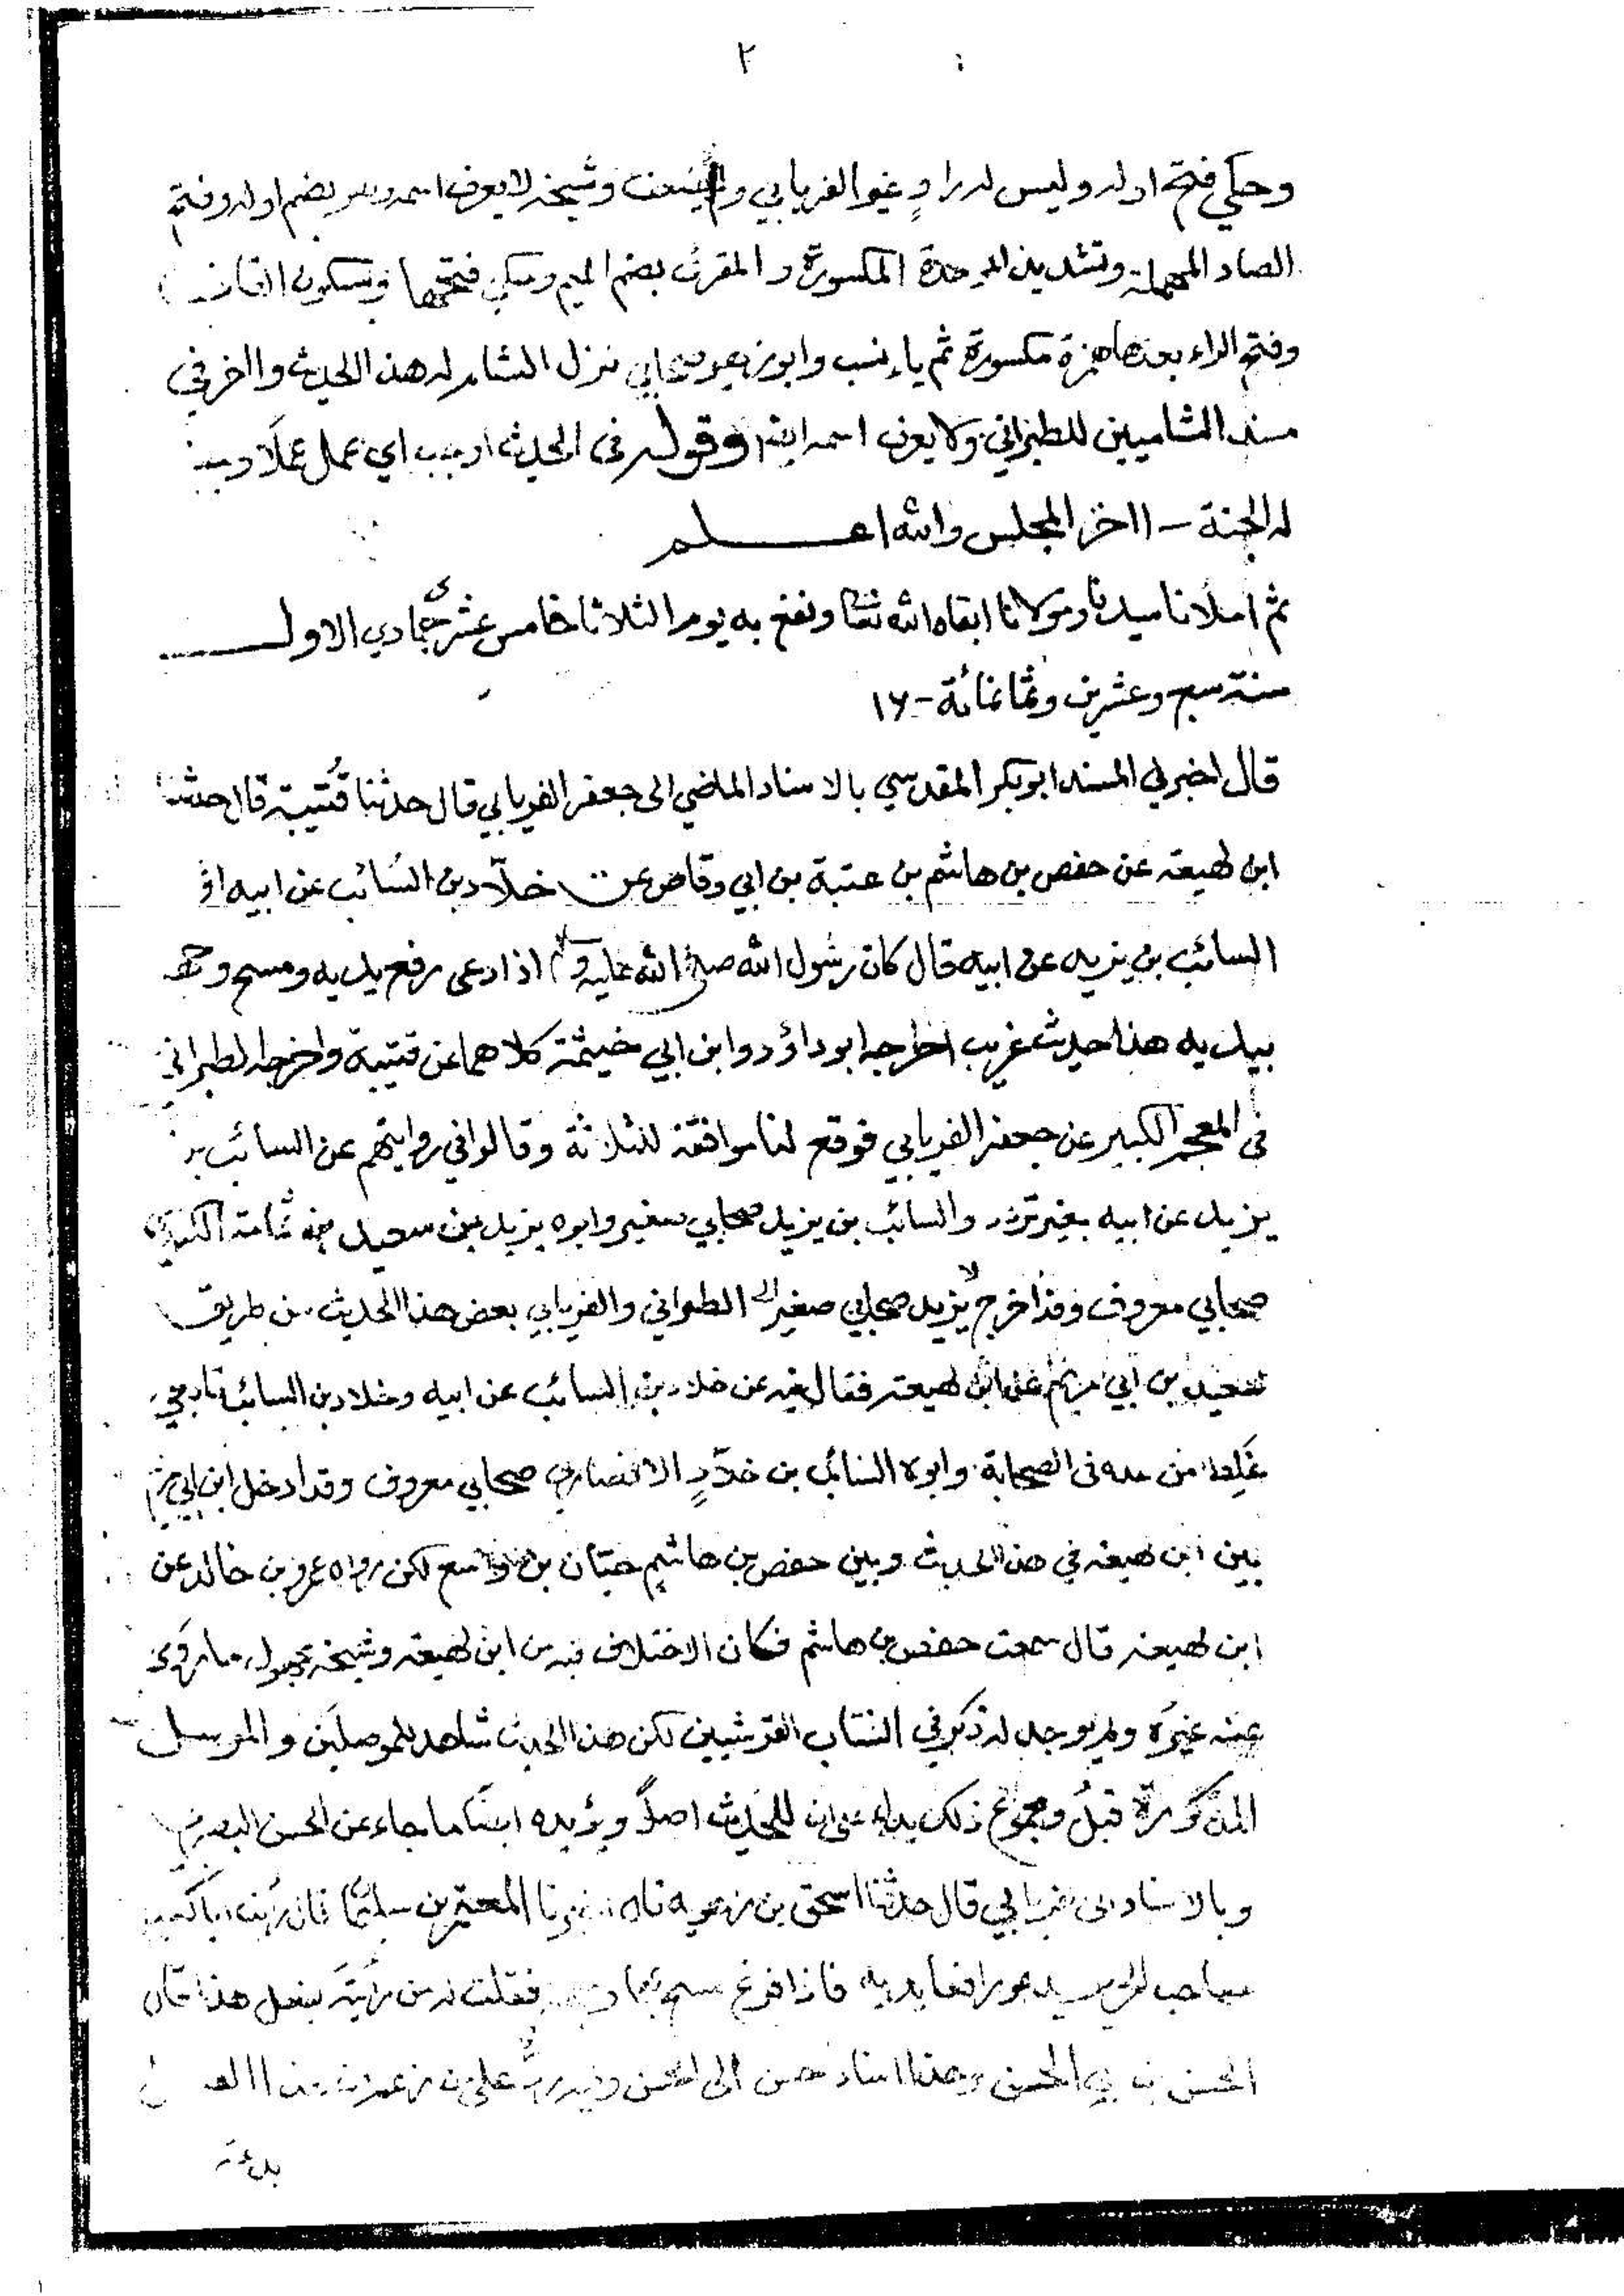 ٢
وحكي فتح اوله وليس له راوٍ غير الفريابي ولم يضعف وشيخه لا يعرف اسمه وهو بضم اوله وفتح
الصاد المهملة وتشديد الموحدة المكسورة والمقرئ بضم الميم وحكي فتحها وسكون القاف
وفتح الراء بعدها همزة مكسورة ثم ياء نسب وابو زهير صحابي نزل الشام له هذا الحديث واخر في
مسند الشاميين للطبراني ولا يعرف اسمه ايضا وقوله في الحديث اوجب اي عمل عملا وجبت
له الجنة - اخر المجلس والله اعلم
ثم املانا سيدنا ومولانا ابقاه الله تعالى ونفع به يوم الثلاثا خامس عشري جمادي الاول
سنة سبع وعشرين وثمانمائة - ١٦
قال اخبرني المسند ابو بكر المقدسي بالاسناد الماضي الى جعفر الفريابي قال حدثنا قُتيبة قال حدثنا
ابن لهيعة عن حفص بن هاشم بن عتبة بن ابي وقاص عن خلّاد بن السائب عن ابيه او
السائب بن يزيد عن ابيه قال كان رسول الله صلى الله عليه وسلم اذا دعى رفع يديه ومسح وجهه
بيديه هذا حديث غريب اخرجه ابو داؤد وابن ابي خيثمة كلاهما عن قتيبة واخرجه الطبراني
في المعجم الكبير عن جعفر الفريابي فوقع لنا موافقة للثلاثة وقالوا في روايتهم عن السائب بن
يزيد عن ابيه بغير تردد والسائب بن يزيد صحابي صغير وابوه يزيد بن سعيد بن ثمامة الكندي
صحابي معروف وقد اخرج لا يزيد صحابي صغير الى الطبراني والفريابي بعض هذا الحديث من طريق
سعيد بن ابي مريم عن ابن لهيعة فقال فيه عن خلاد بن السائب عن ابيه وخلاد بن السائب تابعي
غلط من عده في الصحابة وابوه السائب بن خلّادٍ الانصاري صحابي معروف وقد ادخل ابن ابي مريم
بين ابن لهيعة في هذا الحديث وبين حفص بن هاشم حبّان بن واسع لكن رواه عمرو بن خالد عن
ابن لهيعة قال سمعت حفص بن هاشم فكان الاختلاف فيه من ابن لهيعة وشيخه مجهول ما روى
عنه غيرَه ولم يوجد له ذكر في انساب القرشيين لكن هذا الحديث شاهد للموصلَين والمرسل
المذكورة قبلُ ومجموع ذلك يدل على ان للحديث اصلاً ويؤيده ايضًا ما جاء عن الحسن البصري
وبالاسناد الى الفريابي قال حدثنا اسحق بن راهويه قال اخبرنا المعتمر بن سليمان قال رأيت ابا كعب
صاحب الحرير يدعو رافعا يديه فاذا فرغ مسح بهما وجهه فقلت له من رأيتَ يفعل هذا قال
الحسن بن ابي الحسن وهذا اسناد حسن الى الحسن وفيه ردٌّ على من زعم ان هذا العمل
بدعة